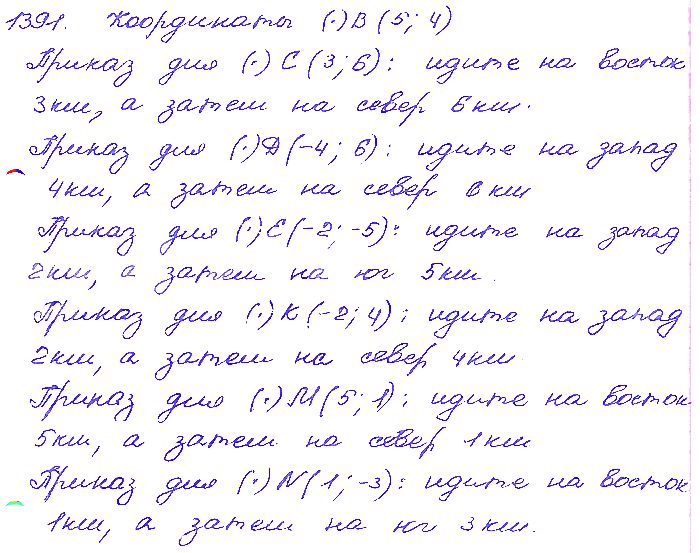 1391. Координаты (·) В (5; 4)
Приказ для (·) С (3; 6): идите на восток
3км, а затем на север 6 км.
Приказ для (·) Д (-4; 6): идите на запад
4км, а затем на север 6 км
Приказ для (·) Е (-2; -5): идите на запад
2км, а затем на юг 5км.
Приказ для (·) К (-2; 4): идите на запад
2км, а затем на север 4км.
Приказ для (·) М (5; 1): идите на восток
5км, а затем на север 1км
Приказ для (·) N (1; -3): идите на восток
1км, а затем на юг 3км.